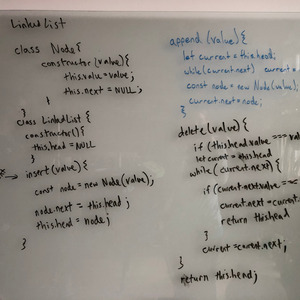 Linked List
class Node{
constructor(value){
this.value=value;
this.next = NULL;
}
class LinkedList {
constructor(){
this.head = NULL
}
insert(value){
const node = new Node(value);
node.next = this.head;
this.head = node;
}
append (value) {
let current = this.head;
while(current.next) current =
const node = new Node(value)
current.next = node;
}
delete(value) {
if (this.head.value ===
let current = this.head
while (current.next) {
if (current.next.value ==
current.next = current.
return this.head
}
current = current.next;
}
return this.head;